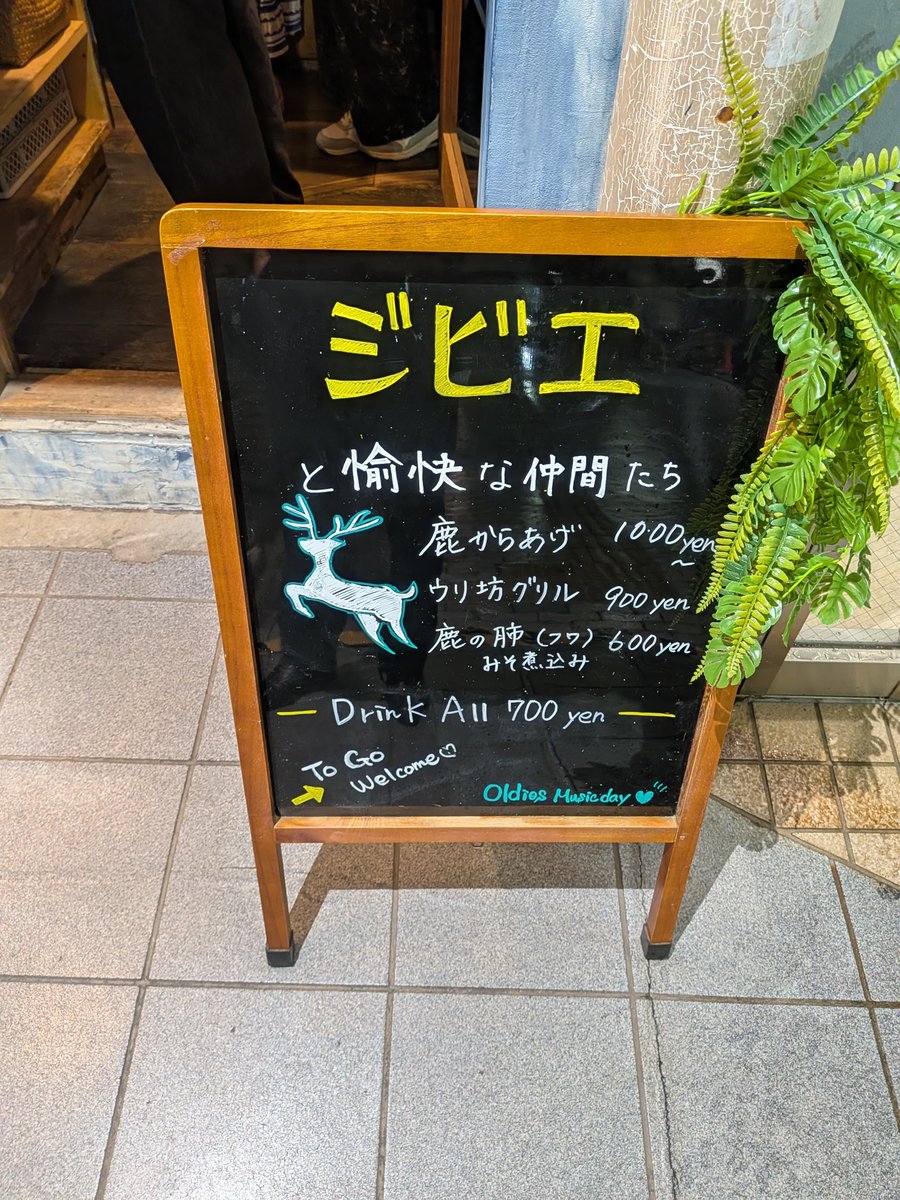 ジビエ
と愉快な仲間たち
鹿からあげ 1000yen~
ウリ坊グリル 900yen
鹿の肺(フワ) 600yen
みそ煮込み
Drink All 700 yen
To Go
Welcome♡
Oldies Music day ♥